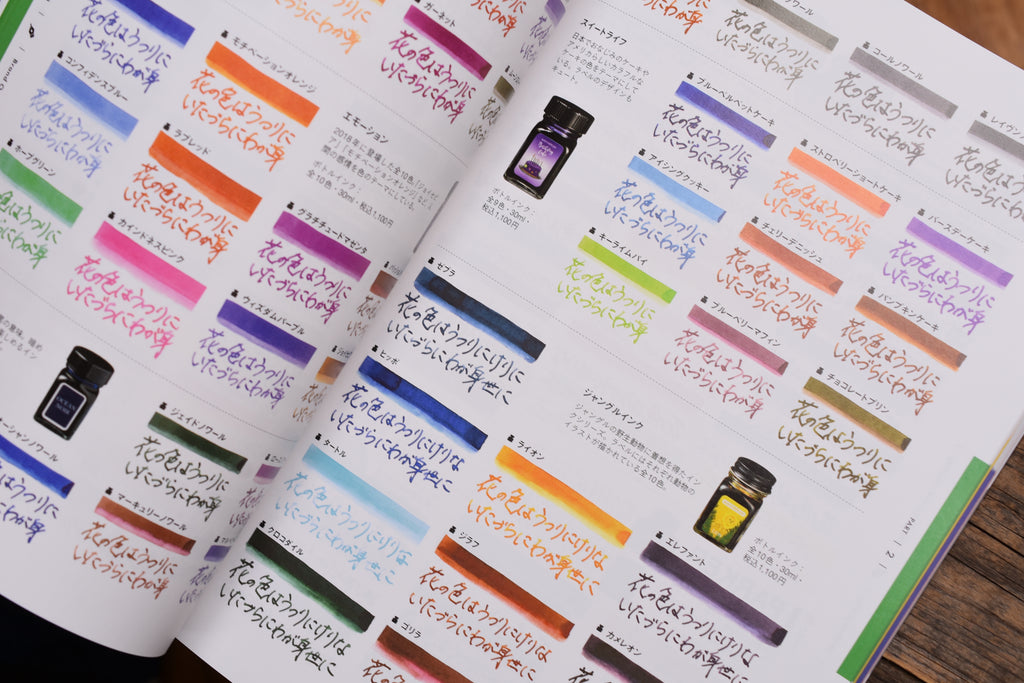 花の色はうつりに
いたづらにわが身
コンフィデンスブルー
花の色はうつりに
いたづらにわが身
ホープグリーン
花の色はうつりに
いたづらにわが身
花の色はうつりに
いたづらにわが身
モチベーションオレンジ
花の色はうつりに
いたづらにわが身
ラブレッド
花の色はうつりに
いたづらにわが身
カインドネスピンク
花の色はうつりに
いたづらにわが身
ガーネット
花の色はうつりに
いたづらにわが身
エモーション
ボトルインク:
全10色・30ml・税込1,100円
グラチチュードマゼンタ
花の色はうつりに
いたづらにわが身
ウィズダムパープル
花の色はうつりに
いたづらにわが身
OCEAN
NOIR
ジェイドノワール
花の色はうつりに
いたづらにわが身
マーキュリーノワール
花の色はうつりに
いたづらにわが身
スイートライフ
日本でおなじみのケーキや
アメリカらしいカラフルな
ボトルインク:
全9色・30ml・
税込1,100円
花の色はうつりに
いたづらにわが身
コールノワール
花の色はうつりに
いたづらにわが身
ブルーベルベットケーキ
花の色はうつりに
いたづらにわが身
アイシングクッキー
花の色はうつりに
いたづらにわが身
キーライムパイ
花の色はうつりに
いたづらにわが身
ストロベリーショートケーキ
花の色はうつりに
いたづらにわが身
チェリーデニッシュ
花の色はうつりに
いたづらにわが身
ブルーベリーマフィン
花の色はうつりに
いたづらにわが身
バースデーケーキ
花の色はうつりに
いたづらにわが身
パンプキンケーキ
花の色はうつりに
いたづらにわが身
チョコレートプリン
花の色はうつりに
いたづらにわが身
ジャングルインク
ジャングルの野生動物に着想を得たイン
クシリーズ。ラベルにはそれぞれ動物の
イラストが描かれている全10色。
ボトルインク:
全10色・30ml・
税込1,100円
ゼブラ
花の色はうつりにけりな
いたづらにわが身世に
ヒッポ
花の色はうつりにけりな
いたづらにわが身世に
タートル
花の色はうつりにけりな
いたづらにわが身世に
クロコダイル
花の色はうつりにけりな
いたづらにわが身世に
ライオン
花の色はうつりにけりな
いたづらにわが身世に
ジラフ
花の色はうつりにけりな
いたづらにわが身世に
ゴリラ
エレファント
花の色はうつりにけりな
いたづらにわが身世に
カメレオン
PART 2